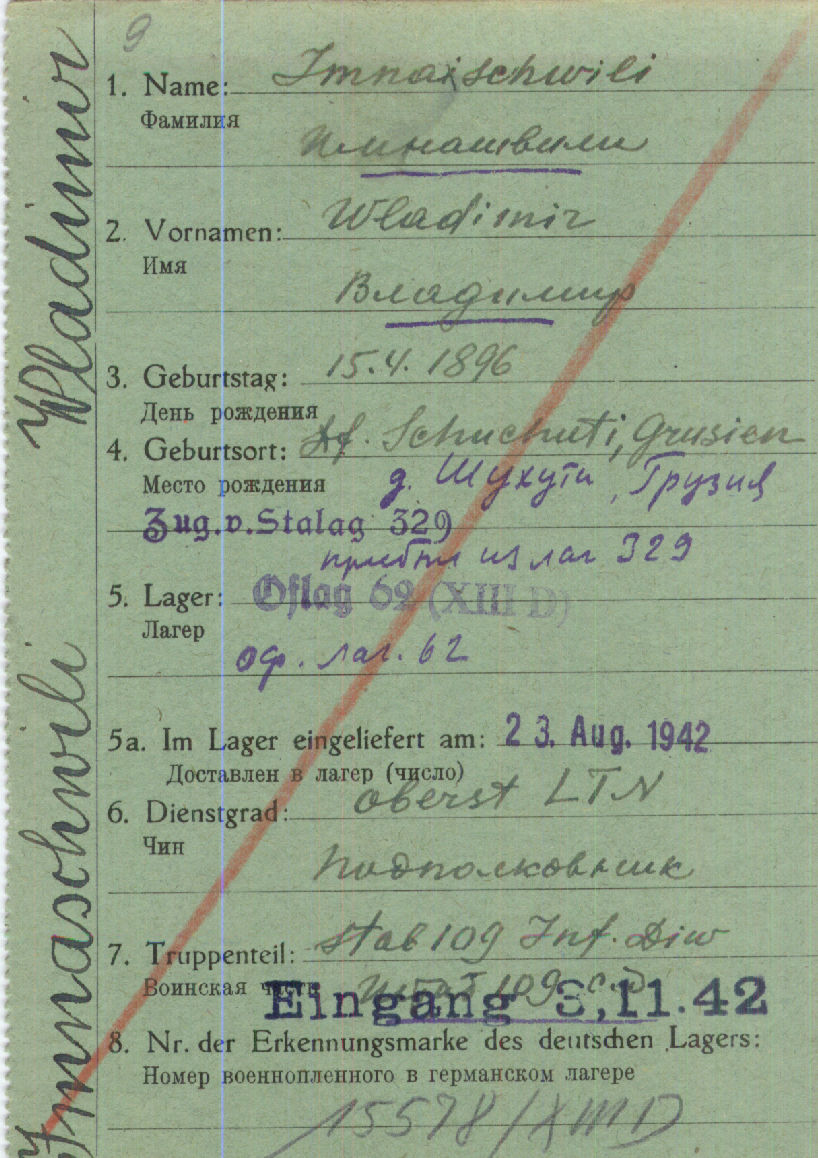 9
Immaschwili Wladimir
1. Name: Imnaischwili
Фамилия
Имнашвили
2. Vornamen: Wladimir
Имя
Владимир
3. Geburtstag: 15.4.1896
День рождения
4. Geburtsort: Df. Schuchuti, Grusien
Место рождения д. Шухути, Грузия
Zug.v.Stalag 329
прибыл из лаг 329
5. Lager: Oflag 62 (XIII D)
Лагер
оф. лаг. 62
5a. Im Lager eingeliefert am: 23. Aug. 1942
Доставлен в лагер (число)
6. Dienstgrad: Oberst LTN
Чин
Подполковник
7. Truppenteil: Stab 109 Inf. Diw
Воинская часть Штаб 109 с.д.
Eingang 3,11.42
8. Nr. der Erkennungsmarke des deutschen Lagers:
Номер военнопленного в германском лагере
15578/XIIID